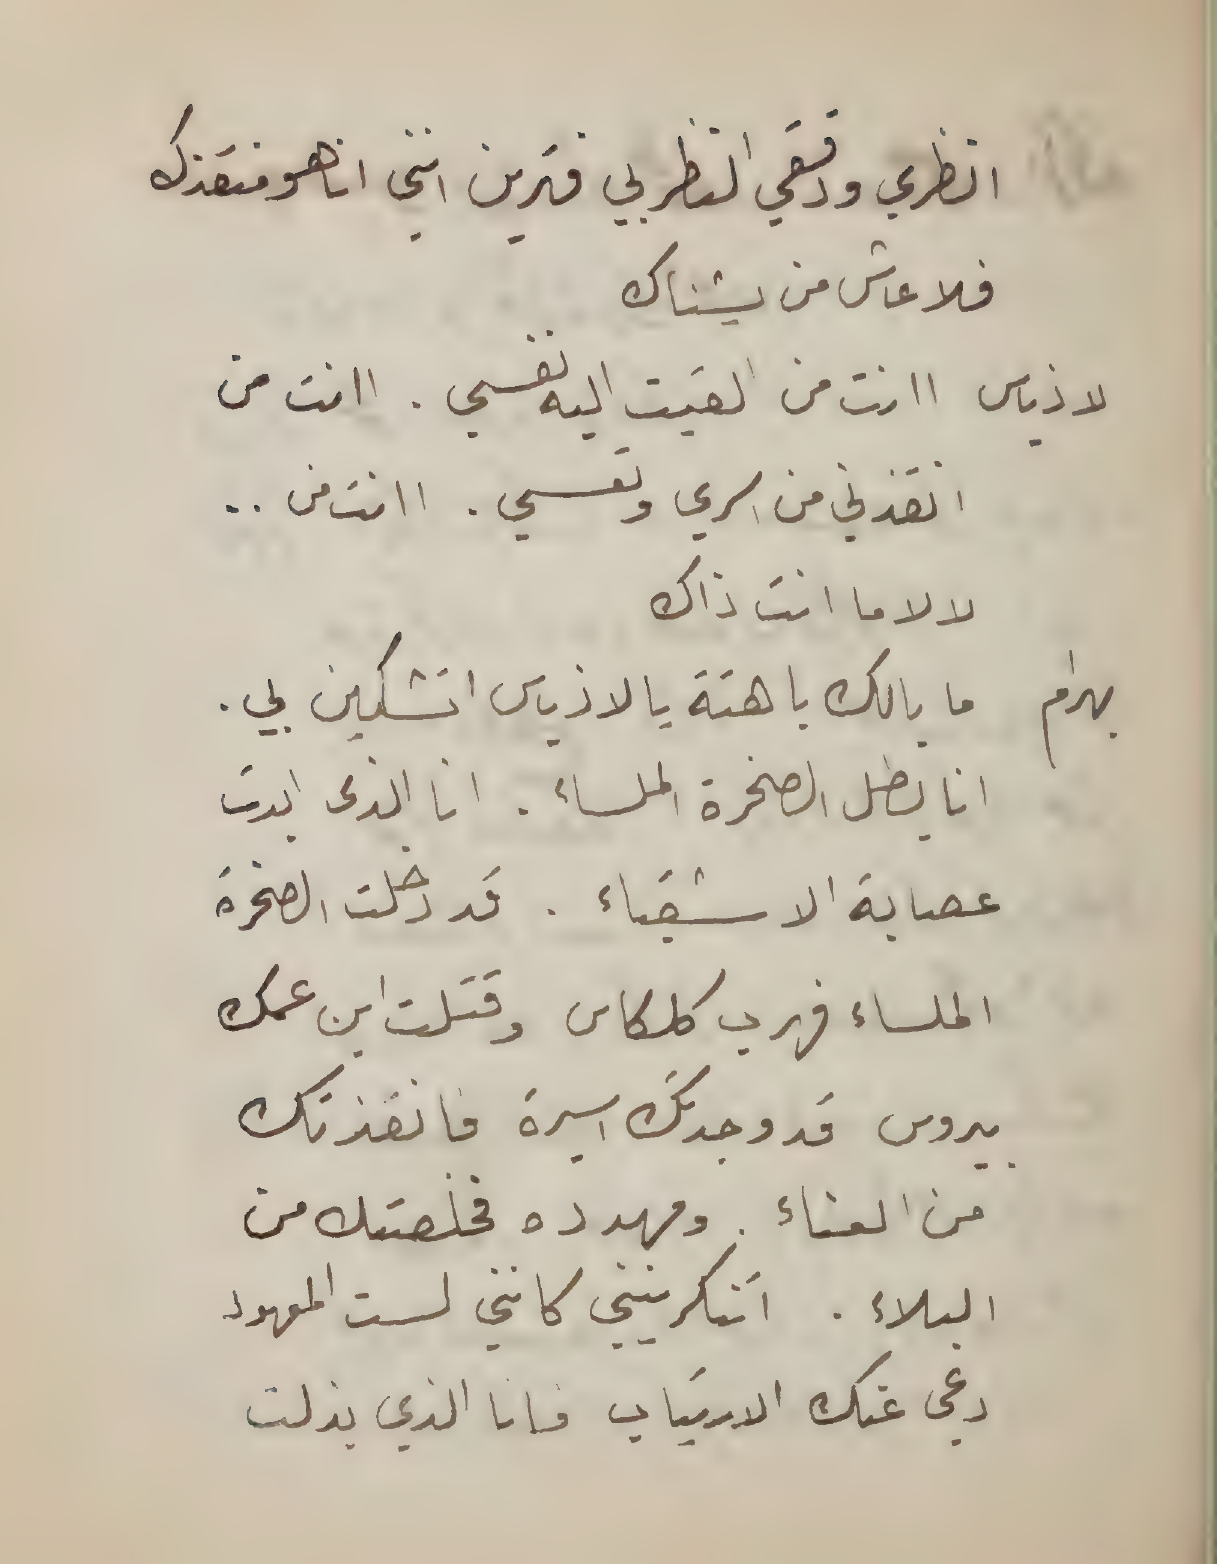 انظري ودققي النظر بي فترين انني انا هو منقذك
فلا عاش من يشناك
لاذياس اانت من القيت اليه نفسي . اانت من
انقذني من اسري وتعسي . اانت من ..
لا لا ما انت ذاك
بهرام ما بالك باهتة يا لاذياس اتشكين بي .
انا بطل الصخرة الملساء . انا الذى ابدت
عصابة الاشقياء . قد دخلت الصخرة
الملساء فهرب كلكاس وقتلت ابن عمك
بيروس قد وجدتك اسيرة فانقذتك
من العناء . ومهددة فخلصتك من
البلاء . اتنكرينني كانني لست المعهود
دعي عنك الارتياب فانا الذي بذلت